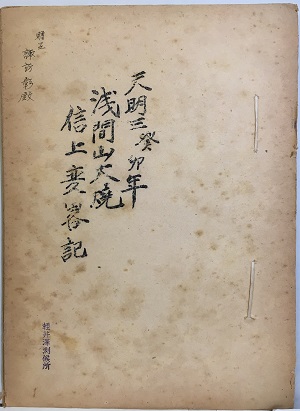 天明三癸卯年
浅間山大焼
信上変容記
贈呈
諏訪彰殿
軽井沢測候所